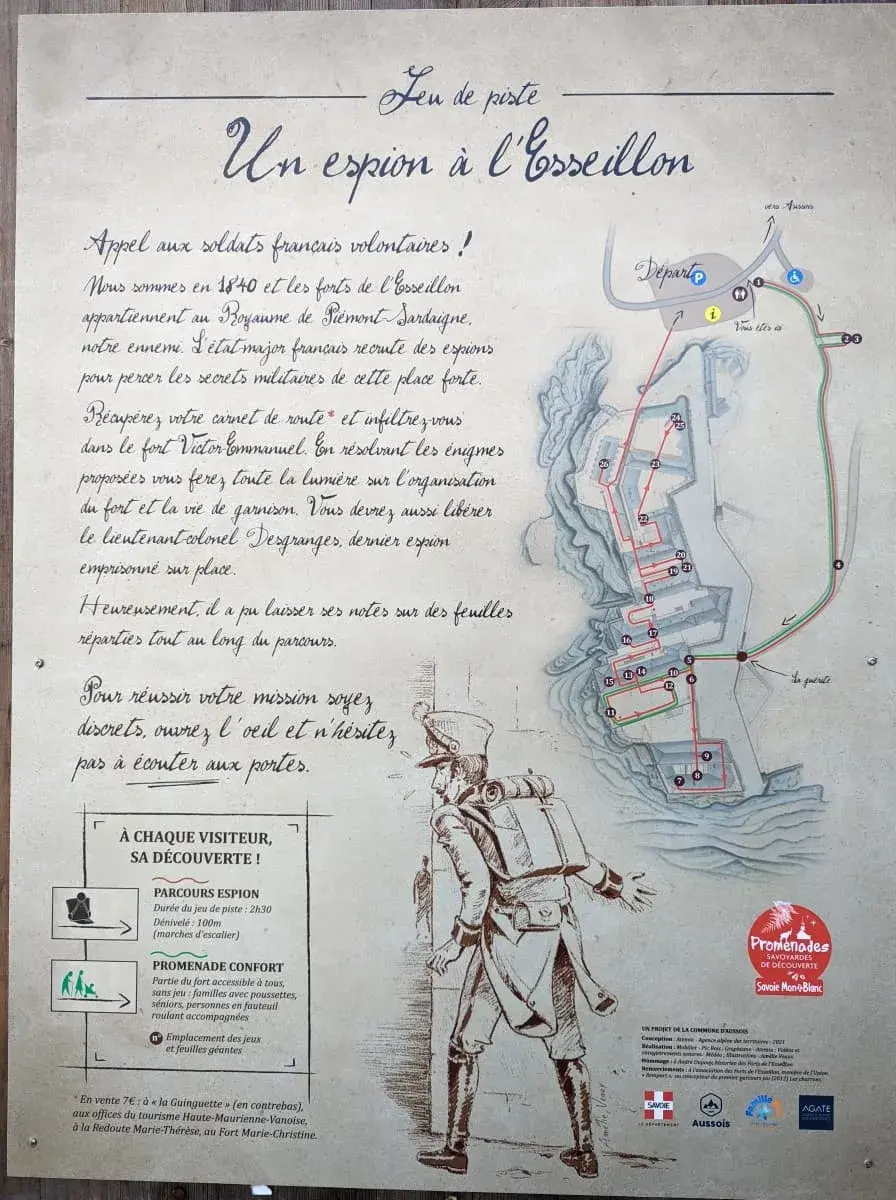 Jeu de piste
Un espion à l'Esseillon
Appel aux soldats français volontaires !
Nous sommes en 1840 et les forts de l'Esseillon
appartiennent au Royaume de Piémont-Sardaigne,
notre ennemi. L'état-major français recrute des espions
pour percer les secrets militaires de cette place forte.
Récupérez votre carnet de route* et infiltrez-vous
dans le fort Victor-Emmanuel. En résolvant les énigmes
proposées vous ferez toute la lumière sur l'organisation
du fort et la vie de garnison. Vous devrez aussi libérer
le lieutenant-colonel Desgranges, dernier espion
emprisonné sur place.
Heureusement, il a pu laisser ses notes sur des feuilles
réparties tout au long du parcours.
Pour réussir votre mission soyez
discrets, ouvrez l'oeil et n'hésitez
pas à écouter aux portes.
vers Aussois
Départ P
i
1
Vous êtes ici
2 3
24
25
26
23
22
20
19 21
18
4
17
16
5
15 13 14 10
6
12
11
La guérite
9
7 8
À CHAQUE VISITEUR,
SA DÉCOUVERTE !
PARCOURS ESPION
Durée du jeu de piste : 2h30
Dénivelé : 100m
(marches d'escalier)
PROMENADE CONFORT
Partie du fort accessible à tous,
sans jeu : familles avec poussettes,
séniors, personnes en fauteuil
roulant accompagnées
n° Emplacement des jeux
et feuilles géantes
* En vente 7€ : à « la Guinguette » (en contrebas),
aux offices du tourisme Haute-Maurienne-Vanoise,
à la Redoute Marie-Thérèse, au Fort Marie-Christine.
Promenades
SAVOYARDES
DE DÉCOUVERTE
Savoie Mont Blanc
UN PROJET DE LA COMMUNE D'AUSSOIS
Conception : Atemia - Agence alpine des territoires - 2021
Réalisation : Mobilier - Pic Bois ; Graphisme - Atemia ; Vidéos et
enregistrements sonores - Médéo ; Illustrations - Amélie Veaux
Hommage : à André Dupouy, historien des Forts de l'Esseillon
SAVOIE
LE DÉPARTEMENT
Aussois
Famille
AGATE